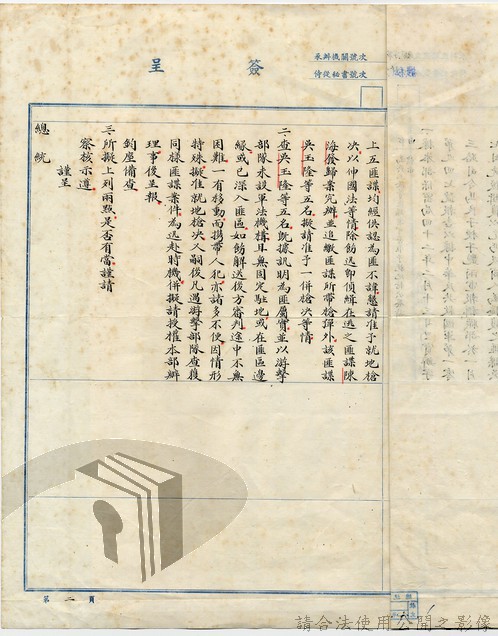 簽呈
承辦機關號次
侍從秘書號次
上五匪諜均經供認為匪不諱懇請准予就地槍
決以伸國法等情除飭送即偵緝在逃之匪諜陳
海發歸案究辦並追繳匪諜所帶槍彈外該匪諜
吳玉隆等五名擬請准予一併槍決等情
二、查吳玉隆等五名既據訊明為匪屬實並以游擊
部隊未設軍法機構且無固定駐地或在匪區邊
緣或已深入匪區如飭解送後方審判途中不無
困難一有移動而携帶人犯亦諸多不便因情形
特殊擬准就地槍決又嗣後凡遇游擊部隊查獲
同樣匪諜案件為迅赴時機併擬請授權本部辦
理事後呈報
鈞座備查
三、所擬上列兩點是否有當謹請
察核示遵
謹呈
總統
第二頁
請合法使用公開之影像